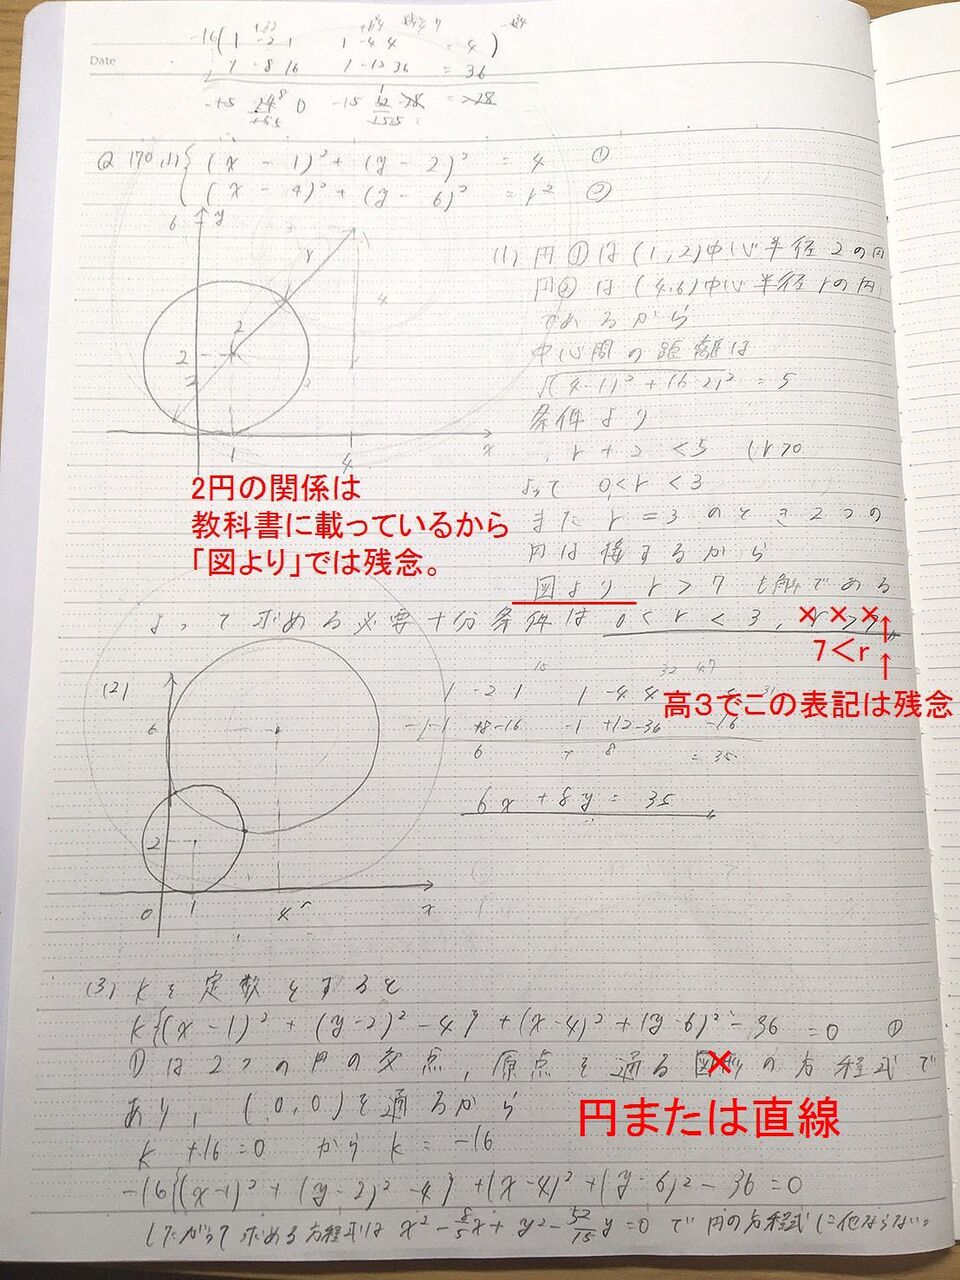 Date
Q 170 (1) { (x - 1)² + (y - 2)² = 4 ①
(x - 4)² + (y - 6)² = r² ②
6 y
r
4
2
2
3
1
4
x
(1) 円①は(1,2)中心半径2の円
円②は(4,6)中心半径rの円
であるから
中心間の距離は
√(4-1)²+(6-2)² = 5
条件より
r + 2 < 5 (r>0
よって 0 < r < 3
また r = 3 のとき2つの
円は接するから
図より r > 7 も解である
よって求める必要十分条件は 0 < r < 3, r > 7
2円の関係は
教科書に載っているから
「図より」では残念。
×××
7<r
高3でこの表記は残念
(2)
6
2
0
1
4
x
1 -2 1 1 -4 4
-1 +12 -36 -16
6 8 = 35
6x + 8y = 35
(3) kを定数をすると
k{(x-1)² + (y-2)² - 4} + (x-4)² + (y-6)² - 36 = 0 ①
①は2つの円の交点, 原点を通る図形の方程式で
あり, (0,0)を通るから
円または直線
k +16 = 0 から k = -16
-16{(x-1)² + (y-2)² - 4} + (x-4)² + (y-6)² - 36 = 0
したがって求める方程式は x² - 8/5x + y² - 52/15y = 0 で円の方程式に他ならない。